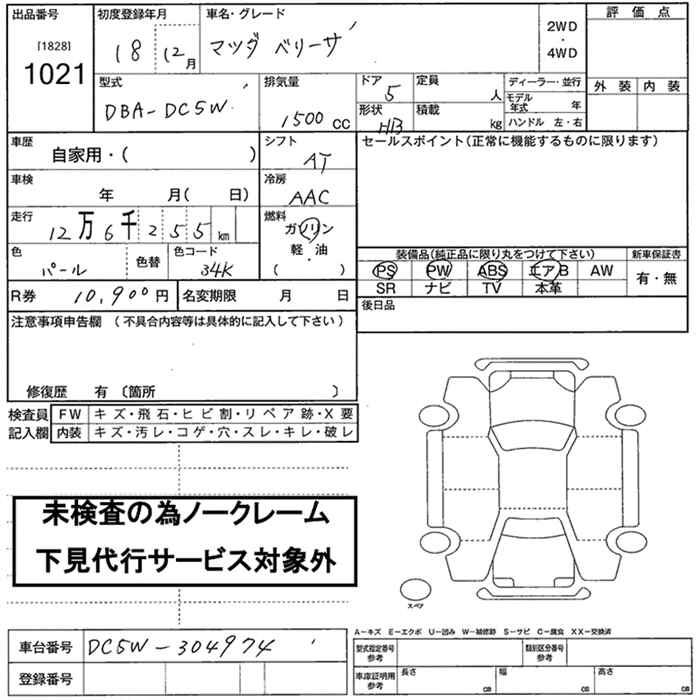 出品番号 初度登録年月 車名・グレード 評価点
[1828]
1021
18 12月 マツダ ベリーサ 2WD・4WD
外装 内装
型式 排気量 ドア 定員 ディーラー・並行
DBA-DC5W 1500 CC 5 人 モデル年式 年
形状 積載
HB kg ハンドル 左・右
車歴 シフト セールスポイント(正常に機能するものに限ります)
自家用・( ) AT
車検 冷房
年 月( 日) AAC
走行 燃料
12万6千255km ガソリン
軽・油
・
( )
色 色替 色コード
パール 34K
装備品(純正品に限り丸をつけて下さい) 新車保証書
PS PW ABS エアB AW 有・無
SR ナビ TV 本革
R券 10,900円 名変期限 月 日
後日品
注意事項申告欄 (不具合内容等は具体的に記入して下さい)
修復歴 有 〔箇所 〕
検査員 FW キズ・飛石・ヒビ割・リペア跡・X要
記入欄 内装 キズ・汚レ・コゲ・穴・スレ・キレ・破レ
未検査の為ノークレーム
下見代行サービス対象外
スペア
車台番号 DC5W-304974
登録番号
A-キズ E-エクボ U-凹み W-補修跡 S-サビ C-腐食 XX-交換済
型式指定番号 参考 類別区分番号 参考
車庫証明用 参考 長さ cm 幅 cm 高さ cm